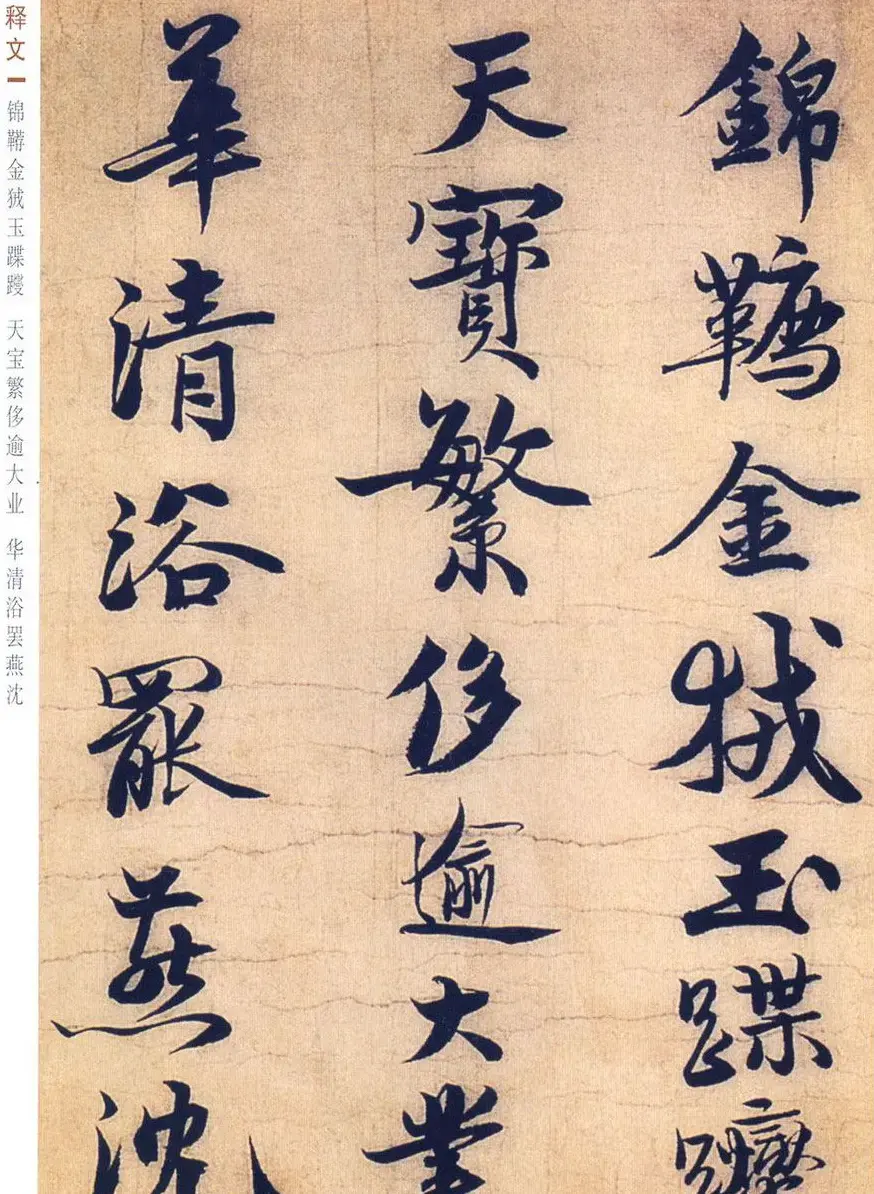 錦韉金狨玉蹀躞
天寶繁侈逾大業
華清浴罷燕沈
释文 锦鞯金狨玉蹀躞 天宝繁侈逾大业 华清浴罢燕沈